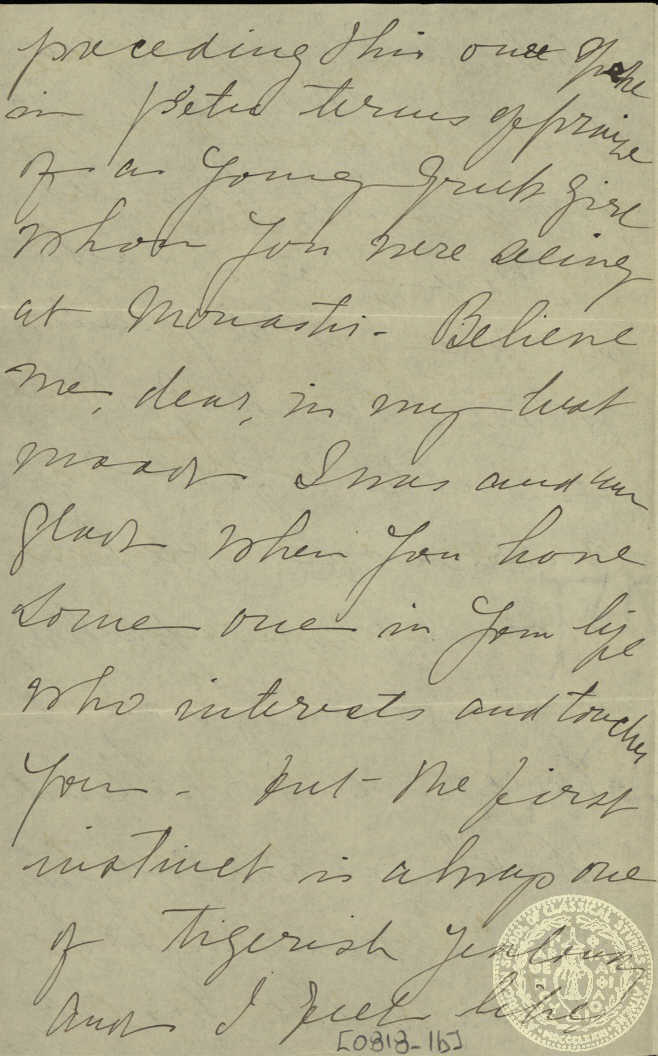 preceding this one spoke
in terms of praise
of a young Greek girl
whom you were seeing
at Monastir - Believe
me, dear, in my best
moods I was and am
glad when you have
some one in your life
who interests and touches
you - but the first
instinct is always one
of tigerish jealousy
and I feel like
[0818-1b]